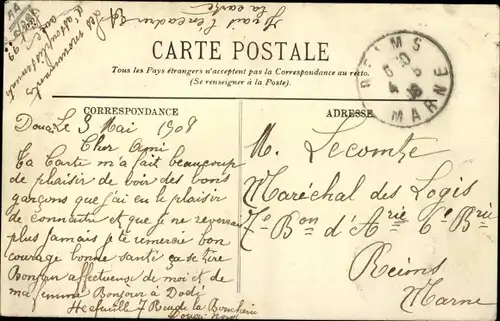 CARTE POSTALE
Tous les Pays étrangers n'acceptent pas la Correspondance au recto.
(Se renseigner à la Poste).
REIMS
MARNE
CORRESPONDANCE
ADRESSE
Mai 1908
Cher Ami
ta Carte m'a fait beaucoup
de plaisir de voir des bons
garçons que j'ai eu le plaisir
de connaitre et que je ne reverrai
plus jamais je te remercie bon
courage bonne santé ça se tire
Bonjour affectueux de moi et de
ma femme Bonjour à Dodé
7 Rue de la Boucherie
M. Lecomte
Maréchal des Logis
7e Bon d'Arie 6e Brie
Reims
Marne